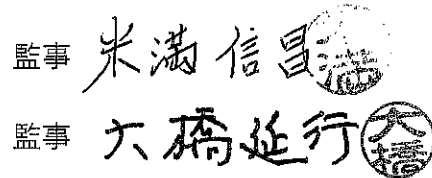 監事 米満信昌
監事 大橋延行 大橋